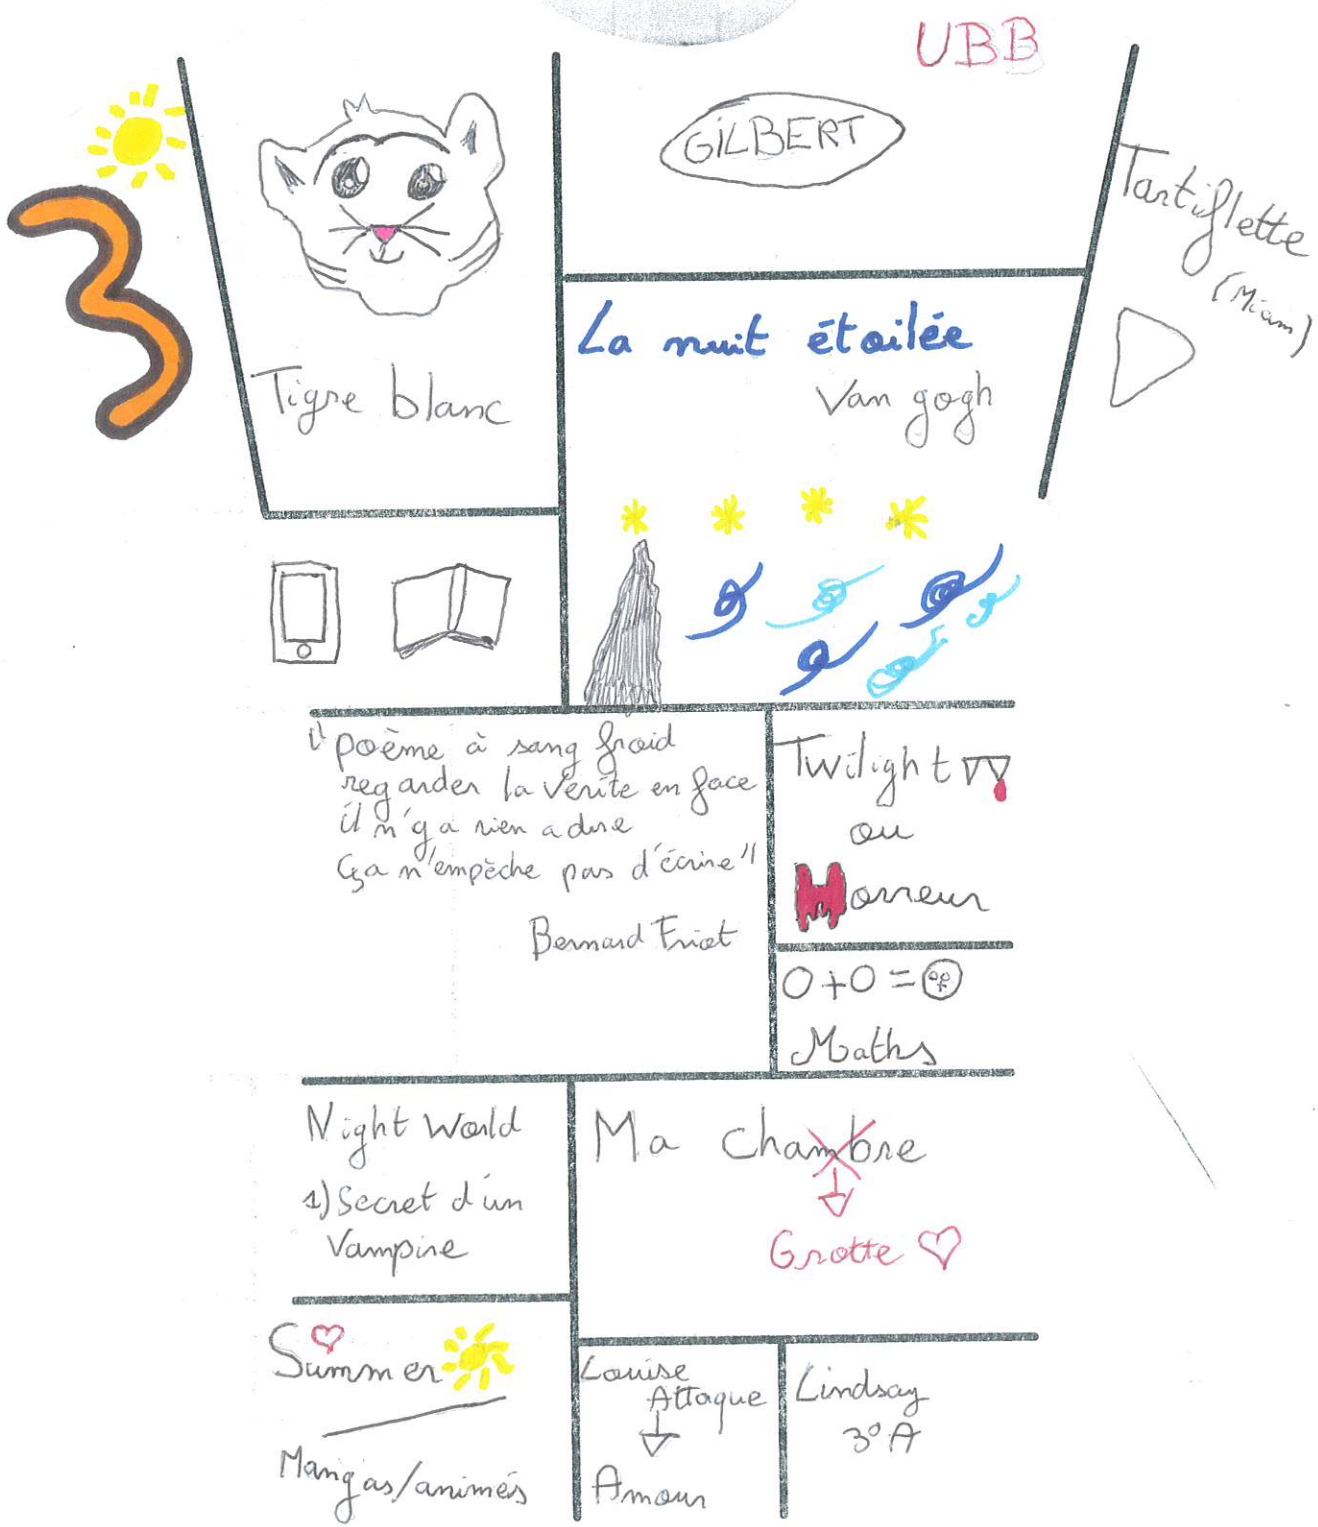 UBB
GILBERT
Tartiflette
(Miam)
3
La nuit étoilée
Van gogh
Tigre blanc
"poème à sang froid
regarder la vérite en face
il n'y a rien a dire
ça n'empêche pas d'écrire"
Bernard Friot
Twilight
ou
Horreur
0+0=
Maths
Night World
1) Secret d'un
Vampire
Ma chambre
Grotte
Summer
Mangas/animés
Louise
Attaque
Amour
Lindsay
3°A